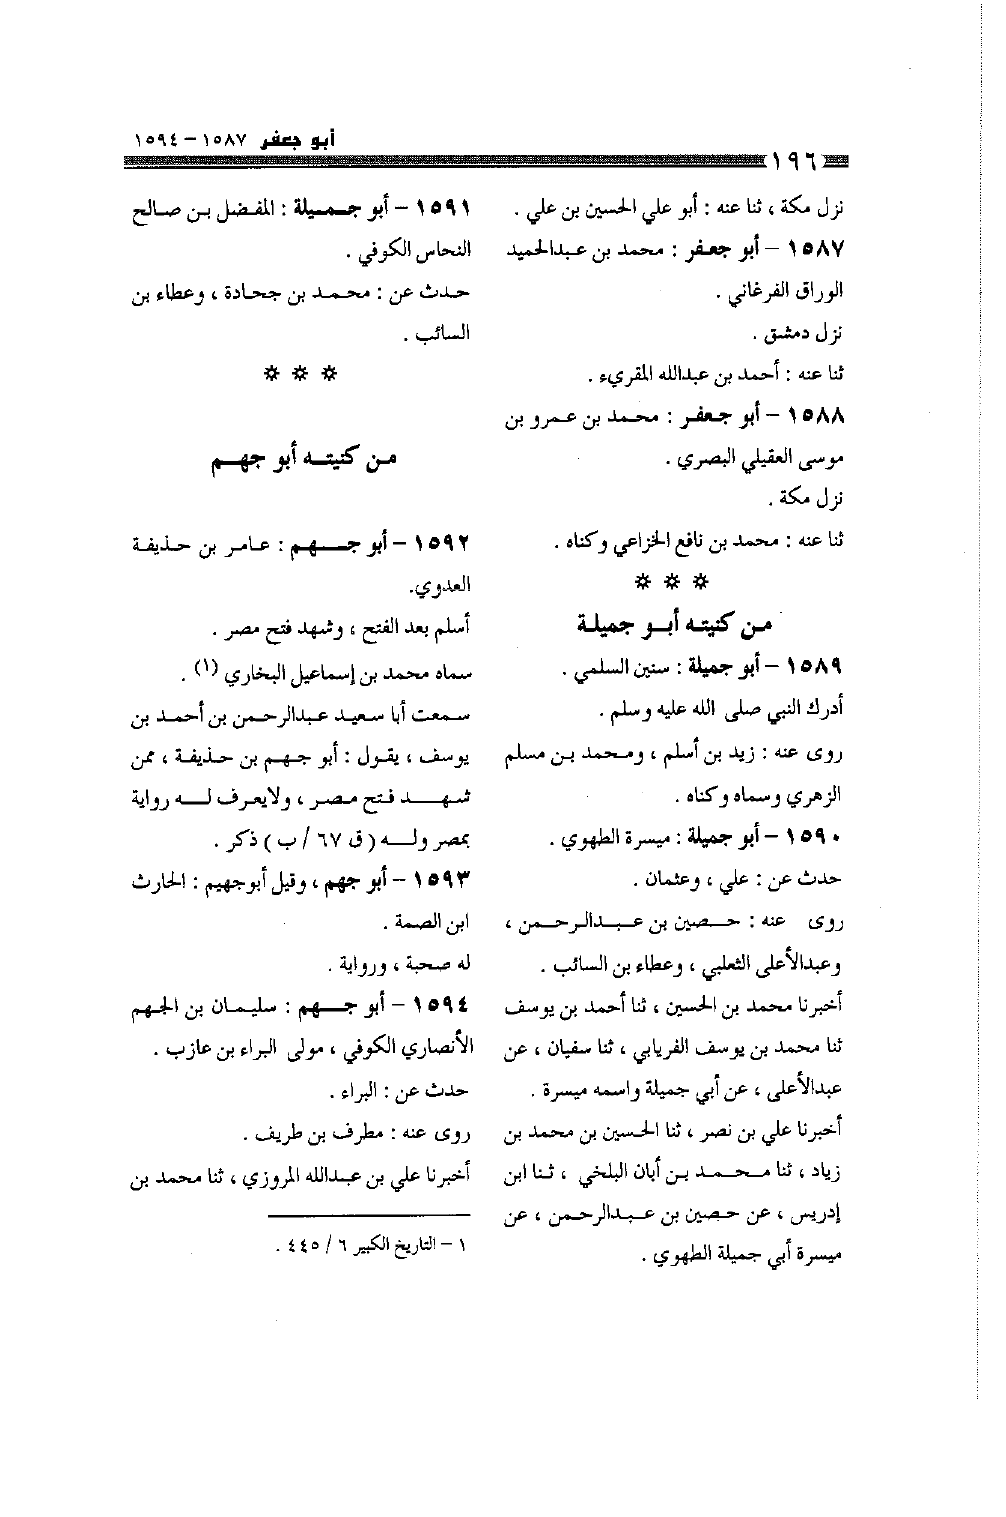 أبو جعفر ١٥٨٧ – ١٥٩٤
١٩٦
نزل مكة ، ثنا عنه : أبو علي الحسين بن علي .
١٥٨٧ – أبو جعفر : محمد بن عبدالحميد
الوراق الفرغاني .
نزل دمشق .
ثنا عنه : أحمد بن عبدالله المقريء .
١٥٨٨ – أبو جعفر : محمد بن عمرو بن
موسى العقيلي البصري .
نزل مكة .
ثنا عنه : محمد بن نافع الخزاعي وكناه .
* * *
من كنيته أبو جميلة
١٥٨٩ – أبو جميلة : سنين السلمي .
أدرك النبي صلى الله عليه وسلم .
روى عنه : زيد بن أسلم ، ومحمد بن مسلم
الزهري وسماه وكناه .
١٥٩٠ – أبو جميلة : ميسرة الطهوي .
حدث عن : علي ، وعثمان .
روى عنه : حصين بن عبدالرحمن ،
وعبدالأعلى الثعلبي ، وعطاء بن السائب .
أخبرنا محمد بن الحسين ، ثنا أحمد بن يوسف
ثنا محمد بن يوسف الفريابي ، ثنا سفيان ، عن
عبدالأعلى ، عن أبي جميلة واسمه ميسرة .
أخبرنا علي بن نصر ، ثنا الحسين بن محمد بن
زياد ، ثنا محمد بن أبان البلخي ، ثنا ابن
إدريس ، عن حصين بن عبدالرحمن ، عن
ميسرة أبي جميلة الطهوي .
١٥٩١ – أبو جميلة : المفضل بن صالح
النحاس الكوفي .
حدث عن : محمد بن جحادة ، وعطاء بن
السائب .
* * *
من كنيته أبو جهم
١٥٩٢ – أبو جهم : عامر بن حذيفة
العدوي.
أسلم بعد الفتح ، وشهد فتح مصر .
سماه محمد بن إسماعيل البخاري (١) .
سمعت أبا سعيد عبدالرحمن بن أحمد بن
يوسف ، يقول : أبو جهم بن حذيفة ، ممن
شهد فتح مصر ، ولايعرف له رواية
بمصر وله ( ق ٦٧ / ب ) ذكر .
١٥٩٣ – أبو جهم ، وقيل أبوجهيم : الحارث
ابن الصمة .
له صحبة ، ورواية .
١٥٩٤ – أبو جهم : سليمان بن الجهم
الأنصاري الكوفي ، مولى البراء بن عازب .
حدث عن : البراء .
روى عنه : مطرف بن طريف .
أخبرنا علي بن عبدالله المروزي ، ثنا محمد بن
١ – التاريخ الكبير ٦ / ٤٤٥ .